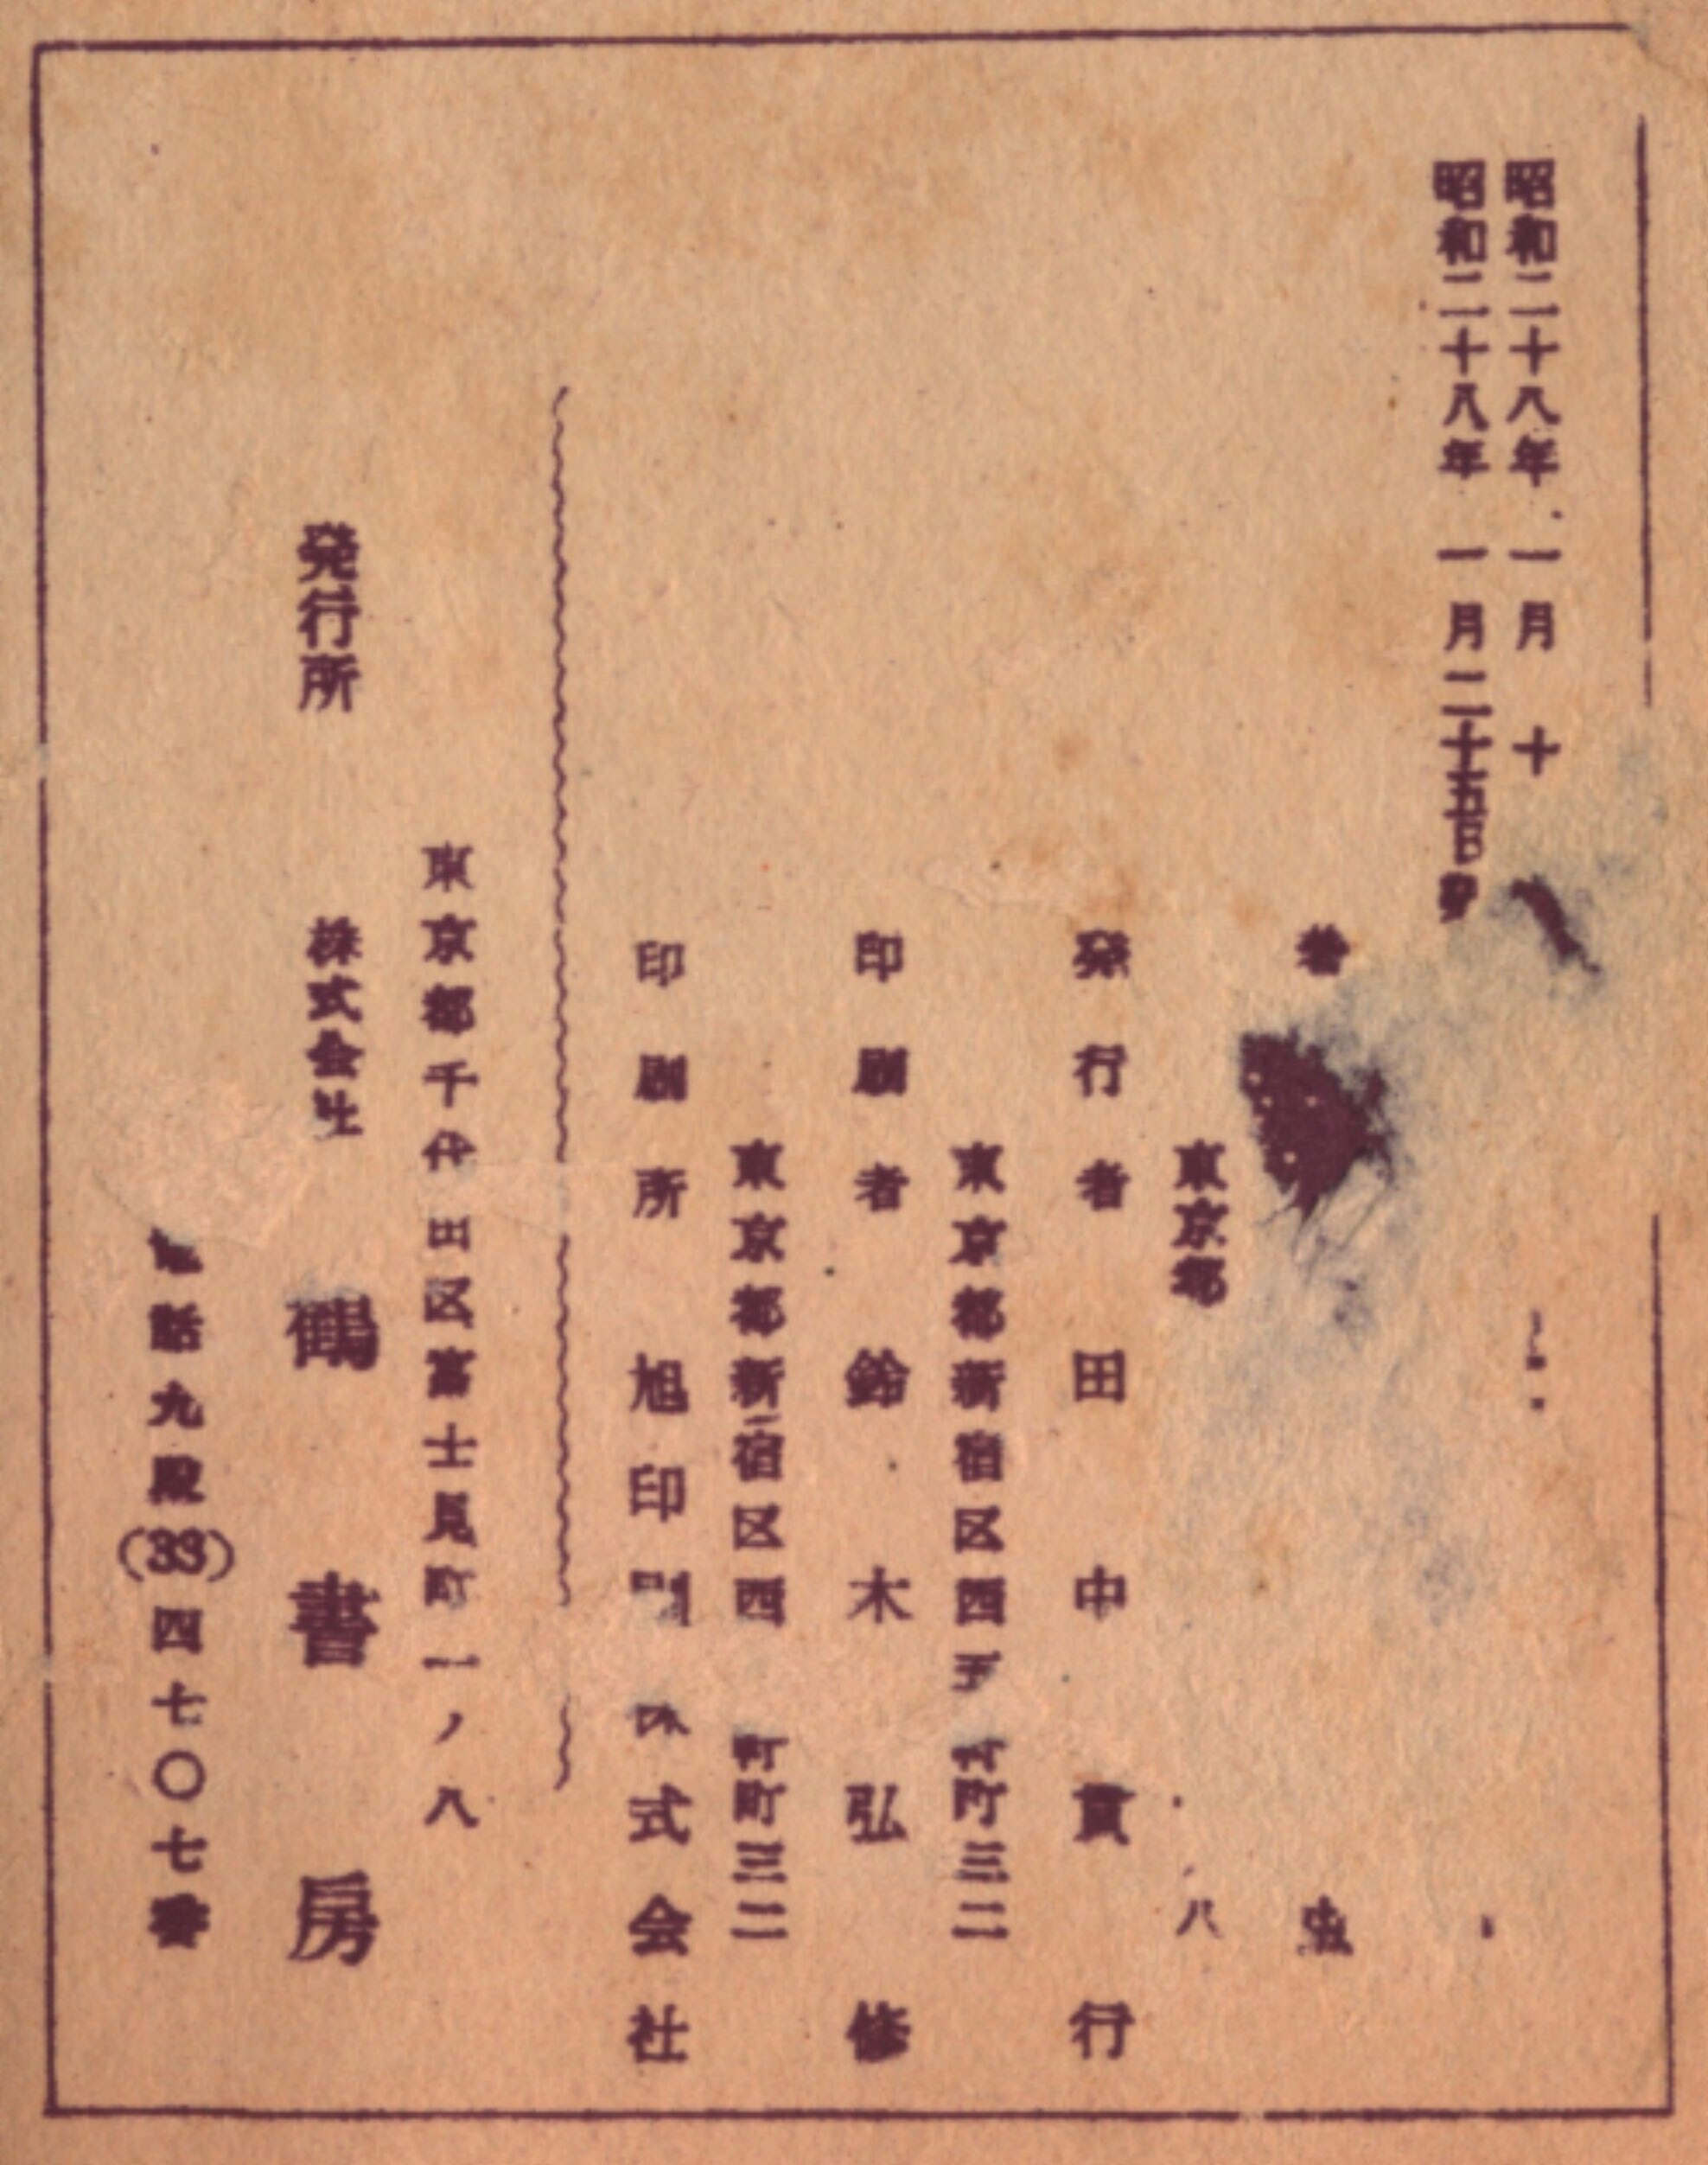 昭和二十八年一月十
昭和二十八年一月二十五日発
著
東京都 八
発行者 田中貫行
東京都新宿区西五軒町三二
印刷者 鈴木弘修
東京都新宿区西 軒町三二
印刷所 旭印刷株式会社
東京都千代田区富士見町一ノ八
発行所 株式会社 鶴書房
電話九段(33)四七〇七番